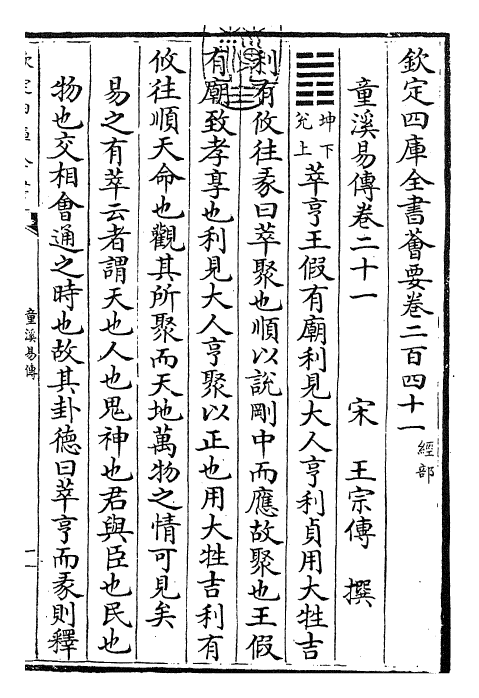 欽定四庫全書薈要卷二百四十一
經部
童溪易傳卷二十一
宋 王宗傳 撰
坤下
兊上
萃亨王假有廟利見大人亨利貞用大牲吉
利有攸往彖曰萃聚也順以說剛中而應故聚也王假
有廟致孝享也利見大人亨聚以正也用大牲吉利有
攸往順天命也觀其所聚而天地萬物之情可見矣
易之有萃云者謂天也人也鬼神也君與臣也民也
物也交相會通之時也故其卦德曰萃亨而彖則釋
童溪易傳
一